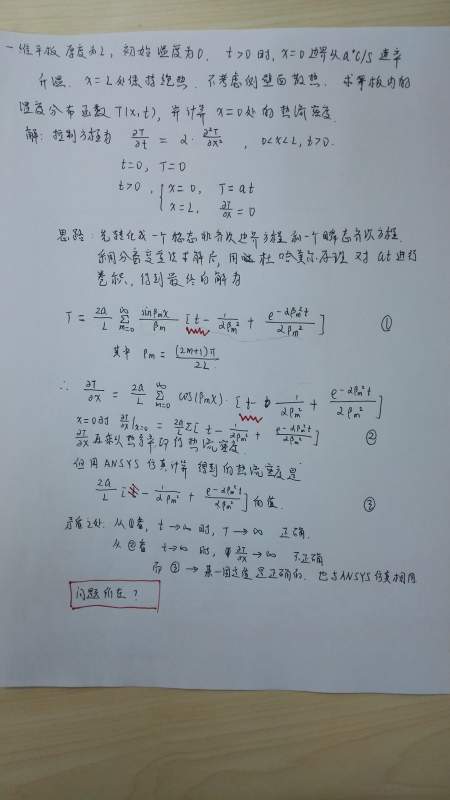 一维平板厚度为L，初始温度为0．t>0时，x=0边界以a℃/s速率
升温．x=L处保持绝热．不考虑侧壁面散热．求平板内的
温度分布函数T(x,t)，并计算x=0处的热流密度．
解：控制方程为 ∂T/∂t = α·∂²T/∂x² , 0<x<L, t>0.
t=0, T=0
t>0, { x=0, T=at
x=L, ∂T/∂x=0
思路：先转化成一个稳态非齐次边界方程和一个瞬态齐次方程．
用分离变量法求解后，用杜哈美尔原理对at进行
卷积，得到最终的解为
T = 2a/L ∑_{m=0}^{∞} sinβₘx/βₘ [t - 1/(αβₘ²) + e^{-αβₘ²t}/(αβₘ²)] ①
其中 βₘ = (2m+1)π/2L.
∴ ∂T/∂x = 2a/L ∑_{m=0}^{∞} cos(βₘx)·[t - 1/(αβₘ²) + e^{-αβₘ²t}/(αβₘ²)]
x=0时 ∂T/∂x|ₓ₌₀ = 2a/L ∑[t - 1/(αβₘ²) + e^{-αβₘ²t}/(αβₘ²)] ②
∂T/∂x 再乘以热导率即得热流密度
但用ANSYS仿真计算得到的热流密度是
2a/L [t - 1/(αβₘ²) + e^{-αβₘ²t}/(αβₘ²)] 的值. ③
矛盾之处：从①看，t→∞时，T→∞ 正确．
从②看 t→∞时，∂T/∂x→∞ 不正确
而③→某一固定值是正确的．也与ANSYS仿真相同
问题何在？